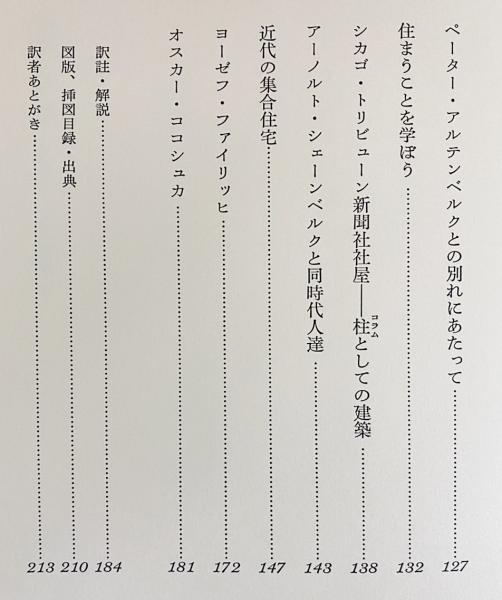 ペーター・アルテンベルクとの別れにあたって……………………127
住まうことを学ぼう……………………132
シカゴ・トリビューン新聞社社屋――柱コラムとしての建築……………………138
アーノルト・シェーンベルクと同時代人達……………………143
近代の集合住宅……………………147
ヨーゼフ・ファイリッヒ……………………172
オスカー・ココシュカ……………………181
訳註・解説……………………184
図版、挿図目録・出典……………………210
訳者あとがき……………………213